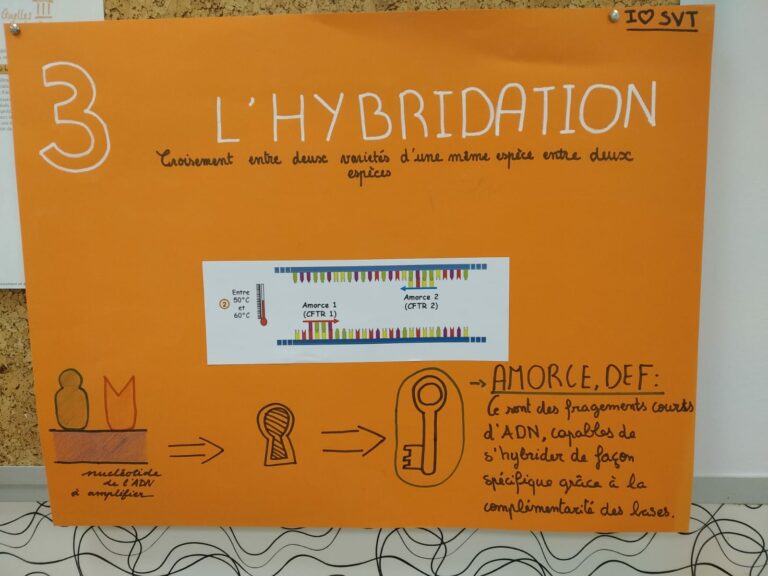 Quelles III
I ♡ SVT
3
L'HYBRIDATION
Croisement entre deux variétés d'une même espèce entre deux
espèces
2
Entre
50°C
et
60°C
Amorce 1
(CFTR 1)
Amorce 2
(CFTR 2)
nucléotide
de l'ADN
à amplifier
→ AMORCE, DEF:
Ce sont des fragements courts
d'ADN, capables de
s'hybrider de façon
spécifique grâce à la
complémentarité des bases.